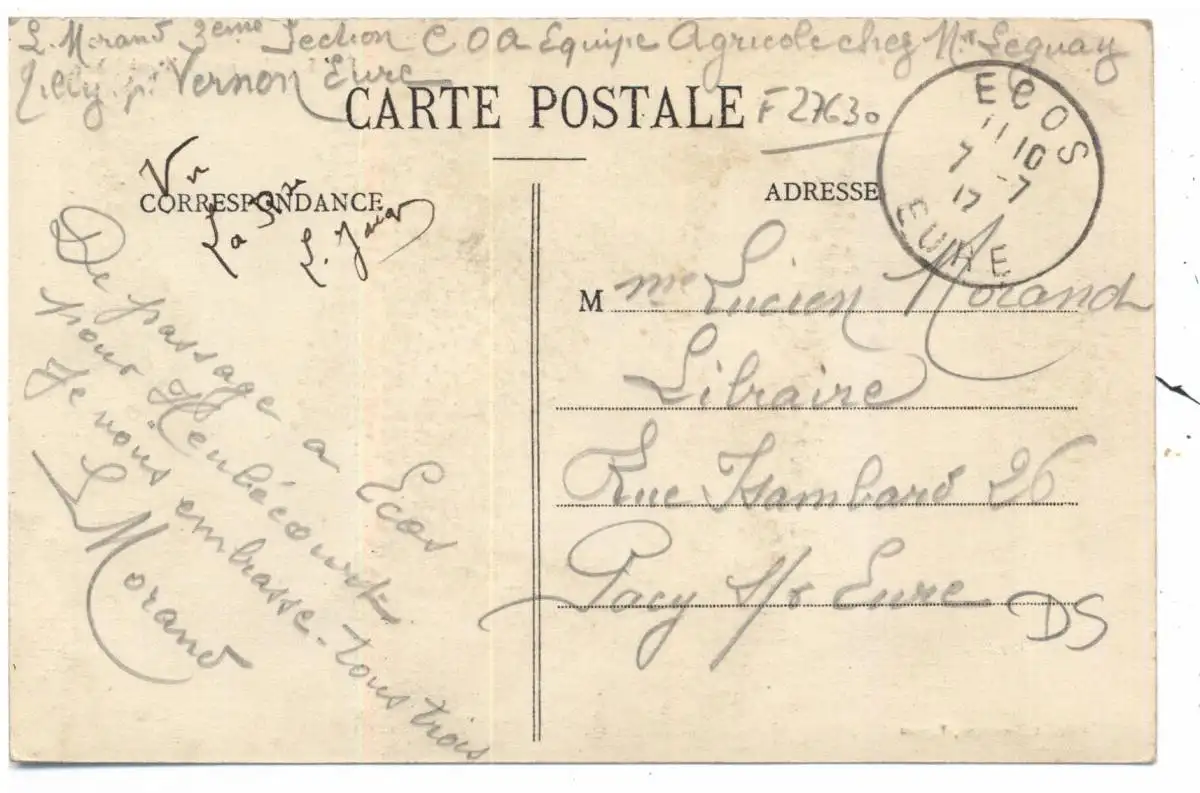 L. Morand 3eme Section C O A Equipe Agricole chez Mr Leguay
Tilly pr Vernon Eure
CARTE POSTALE
F 27630
ECOS
11 10
7 7
17
EURE
Vu
CORRESPONDANCE
ADRESSE
La
L.
De passage a Ecos
pour Heubécourt
Je vous embrasse tous trois
L Morand
M me Lucien Morand
Libraire
Rue Isambard 26
Pacy s/r Eure
DS